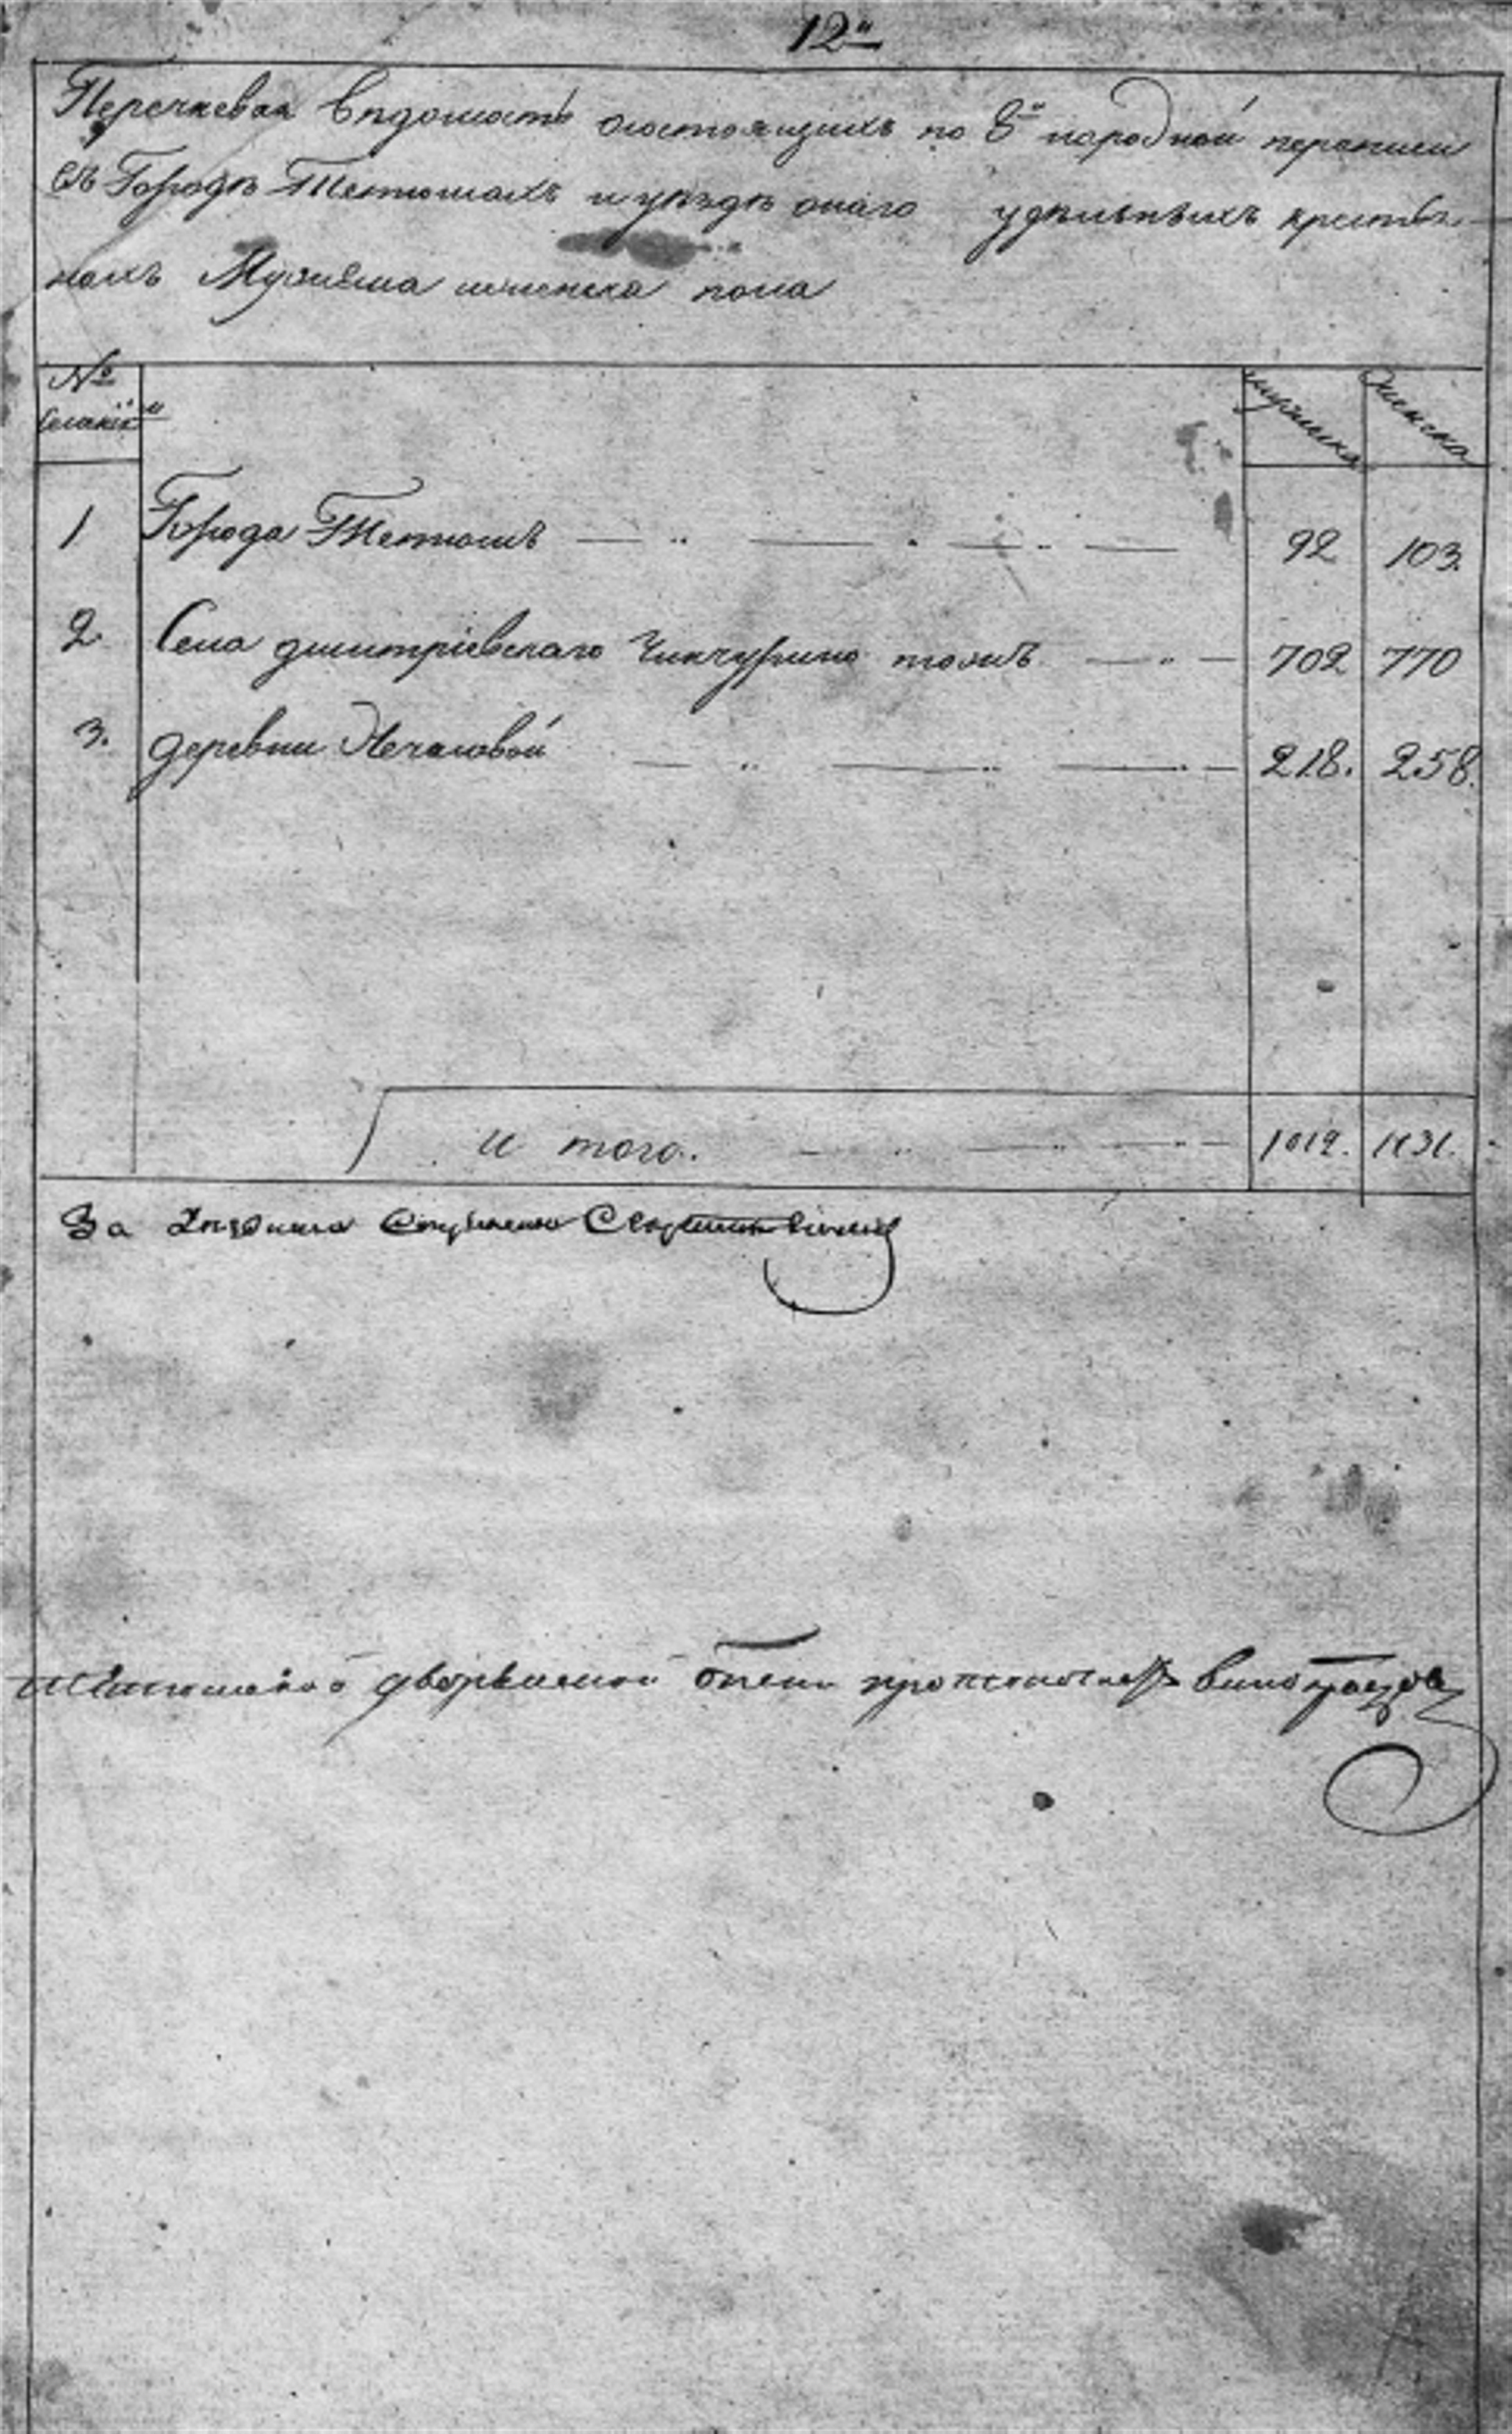 12й
Перечневая Ведомость о состоящихъ по 8й народной переписи
въ Городѣ Тетюшахъ и уѣздѣ онаго удѣльныхъ крестья
нахъ Мужеска и женска пола
№
Селенiй мужеска женска
1 Города Тетюшъ 92 103.
2 Села дмитрiевскаго Чинчурино тожъ 702 770
3. деревни Нечасовой 218. 258.
и того. 1012. 1131.
За
дворянской Опеки протоколистъ Виноградовъ